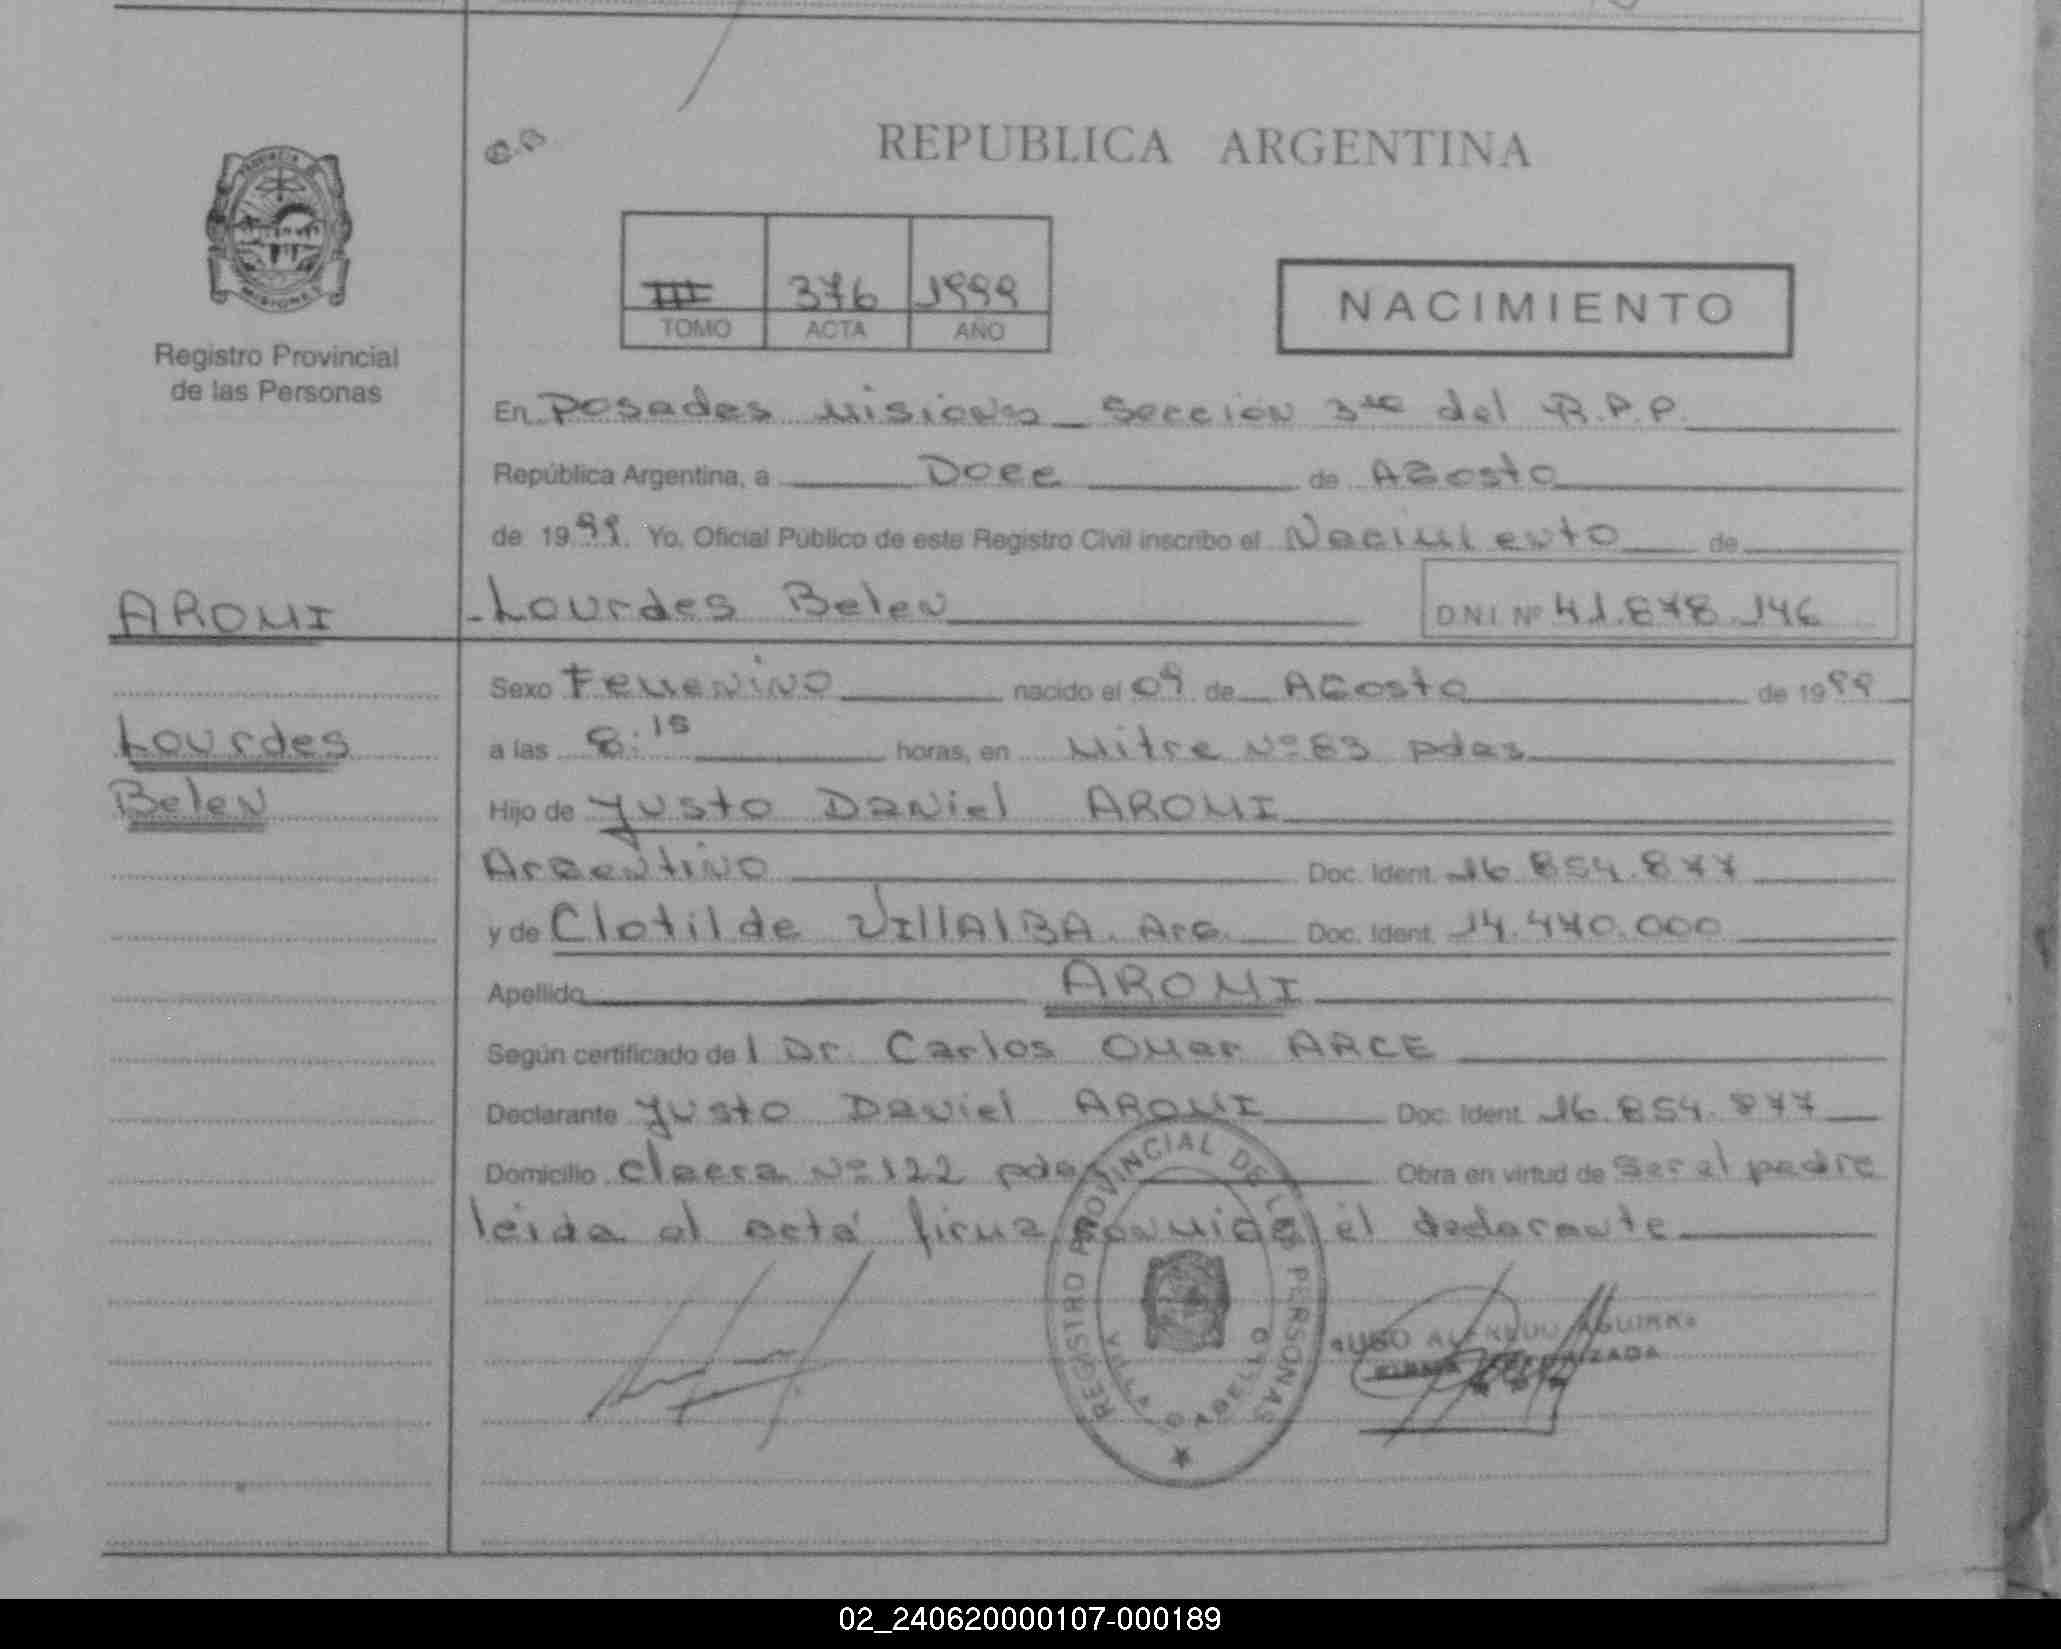 REPUBLICA ARGENTINA
PROVINCIA
MISIONES
Registro Provincial
de las Personas
III 376 1999
TOMO ACTA AÑO
NACIMIENTO
En Posadas Misiones Sección 3ra del R.P.P.
República Argentina, a Doce de Agosto
de 1999. Yo, Oficial Público de este Registro Civil inscribo el Nacimiento de
AROMI
Lourdes Belen D.N.I. Nº 41.878.146
Sexo Femenino nacido el 09 de Agosto de 1999
Lourdes
a las 8:15 horas, en Mitre Nº 83 pdas
Belen
Hijo de Justo Daniel AROMI
Argentino Doc. Ident. 16.854.877
y de Clotilde VIllAlBA. Arg. Doc. Ident. 14.470.000
Apellido AROMI
Según certificado de l Dr. Carlos Omar ARCE
Declarante Justo Daniel AROMI Doc. Ident. 16.854.877
Domicilio Nº 122 pdas Obra en virtud de Ser el padre
leida el acta firma conmigo el declarante
REGISTRO PROVINCIAL DE LAS PERSONAS
VILLA CABELLO
HUGO ALFREDO AGUIRRE
FIRMA AUTORIZADA
02_240620000107-000189